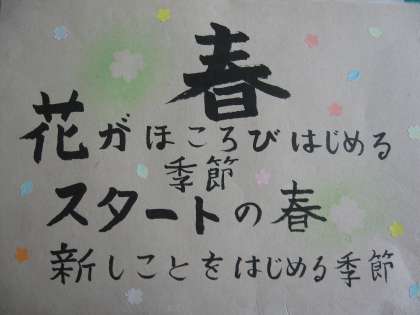 春
花がほころびはじめる
季節
スタートの春
新しことをはじめる季節